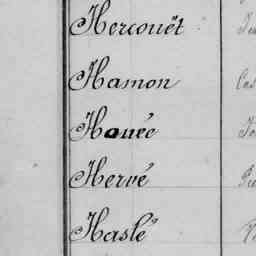 Hercouët
Hamon
Houée
Hervé
Haslé